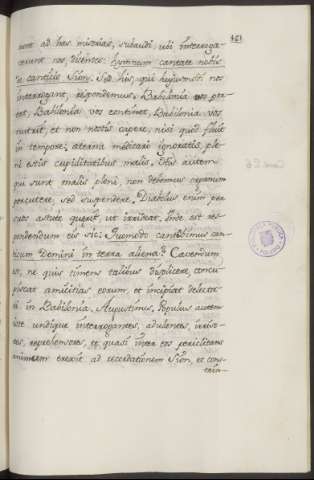 451
runt ad has miserias, subaudi, ubi interroga-
verunt nos, dicentes: hymnum cantate nobis
de canticis Sion. Sed his, qui hujusmodi nos
interrogant, respondemus: Babilonia vos por-
tat, Babilonia vos continet, Babilonia vos
nutrit, et non nostis capere, nisi quod fluit
in tempore; aeterna meditari ignoratis, ple-
ni estis cupiditatibus malis. His autem
qui sunt malis pleni, non debemus organum
percutere, sed suspendere. Diabolus enim per
eos astute quaerit, ut irrideat. Unde est res-
pondendum eis sic: Quomodo cantabimus can-
ticum Domini in terra aliena? Cavendum
est, ne quis timens talibus displicere, concu-
piscat amicitias eorum, et incipiat delecta-
ri in Babilonia. Augustinus, Populus autem
iste undique interrogantes, adulantes, irriso-
res, reprehensores, et quasi inter eos periclitans
animam erexit ad recordationem Sion, et cons-